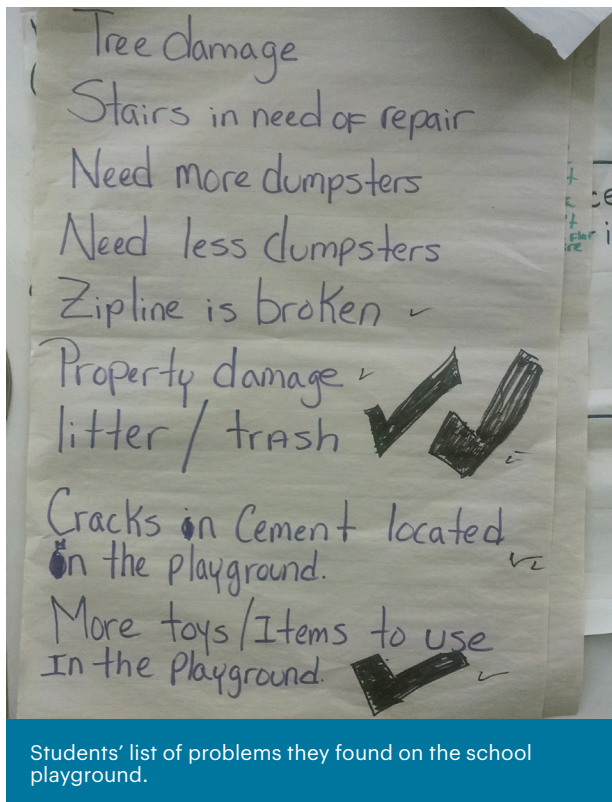 Tree damage
Stairs in need of repair
Need more dumpsters
Need less dumpsters
Zipline is broken ✓
Property damage ✓
litter / trash ✓ ✓
Cracks in Cement located
in the playground.
More toys/Items to use
In the Playground. ✓ ✓
Students’ list of problems they found on the school
playground.